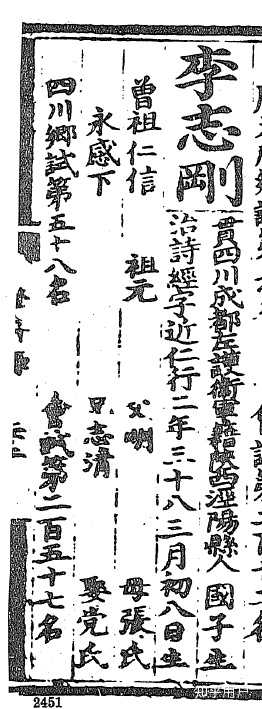 李志剛
貫四川成都左護衛軍籍陝西涇陽縣人 國子生
治詩經字近仁行二年三十八三月初八日生
曾祖仁信 祖元 父明 母張氏
永感下 兄志清 娶党氏
四川鄉試第五十八名 會試第二百五十七名
2451
知乎用户